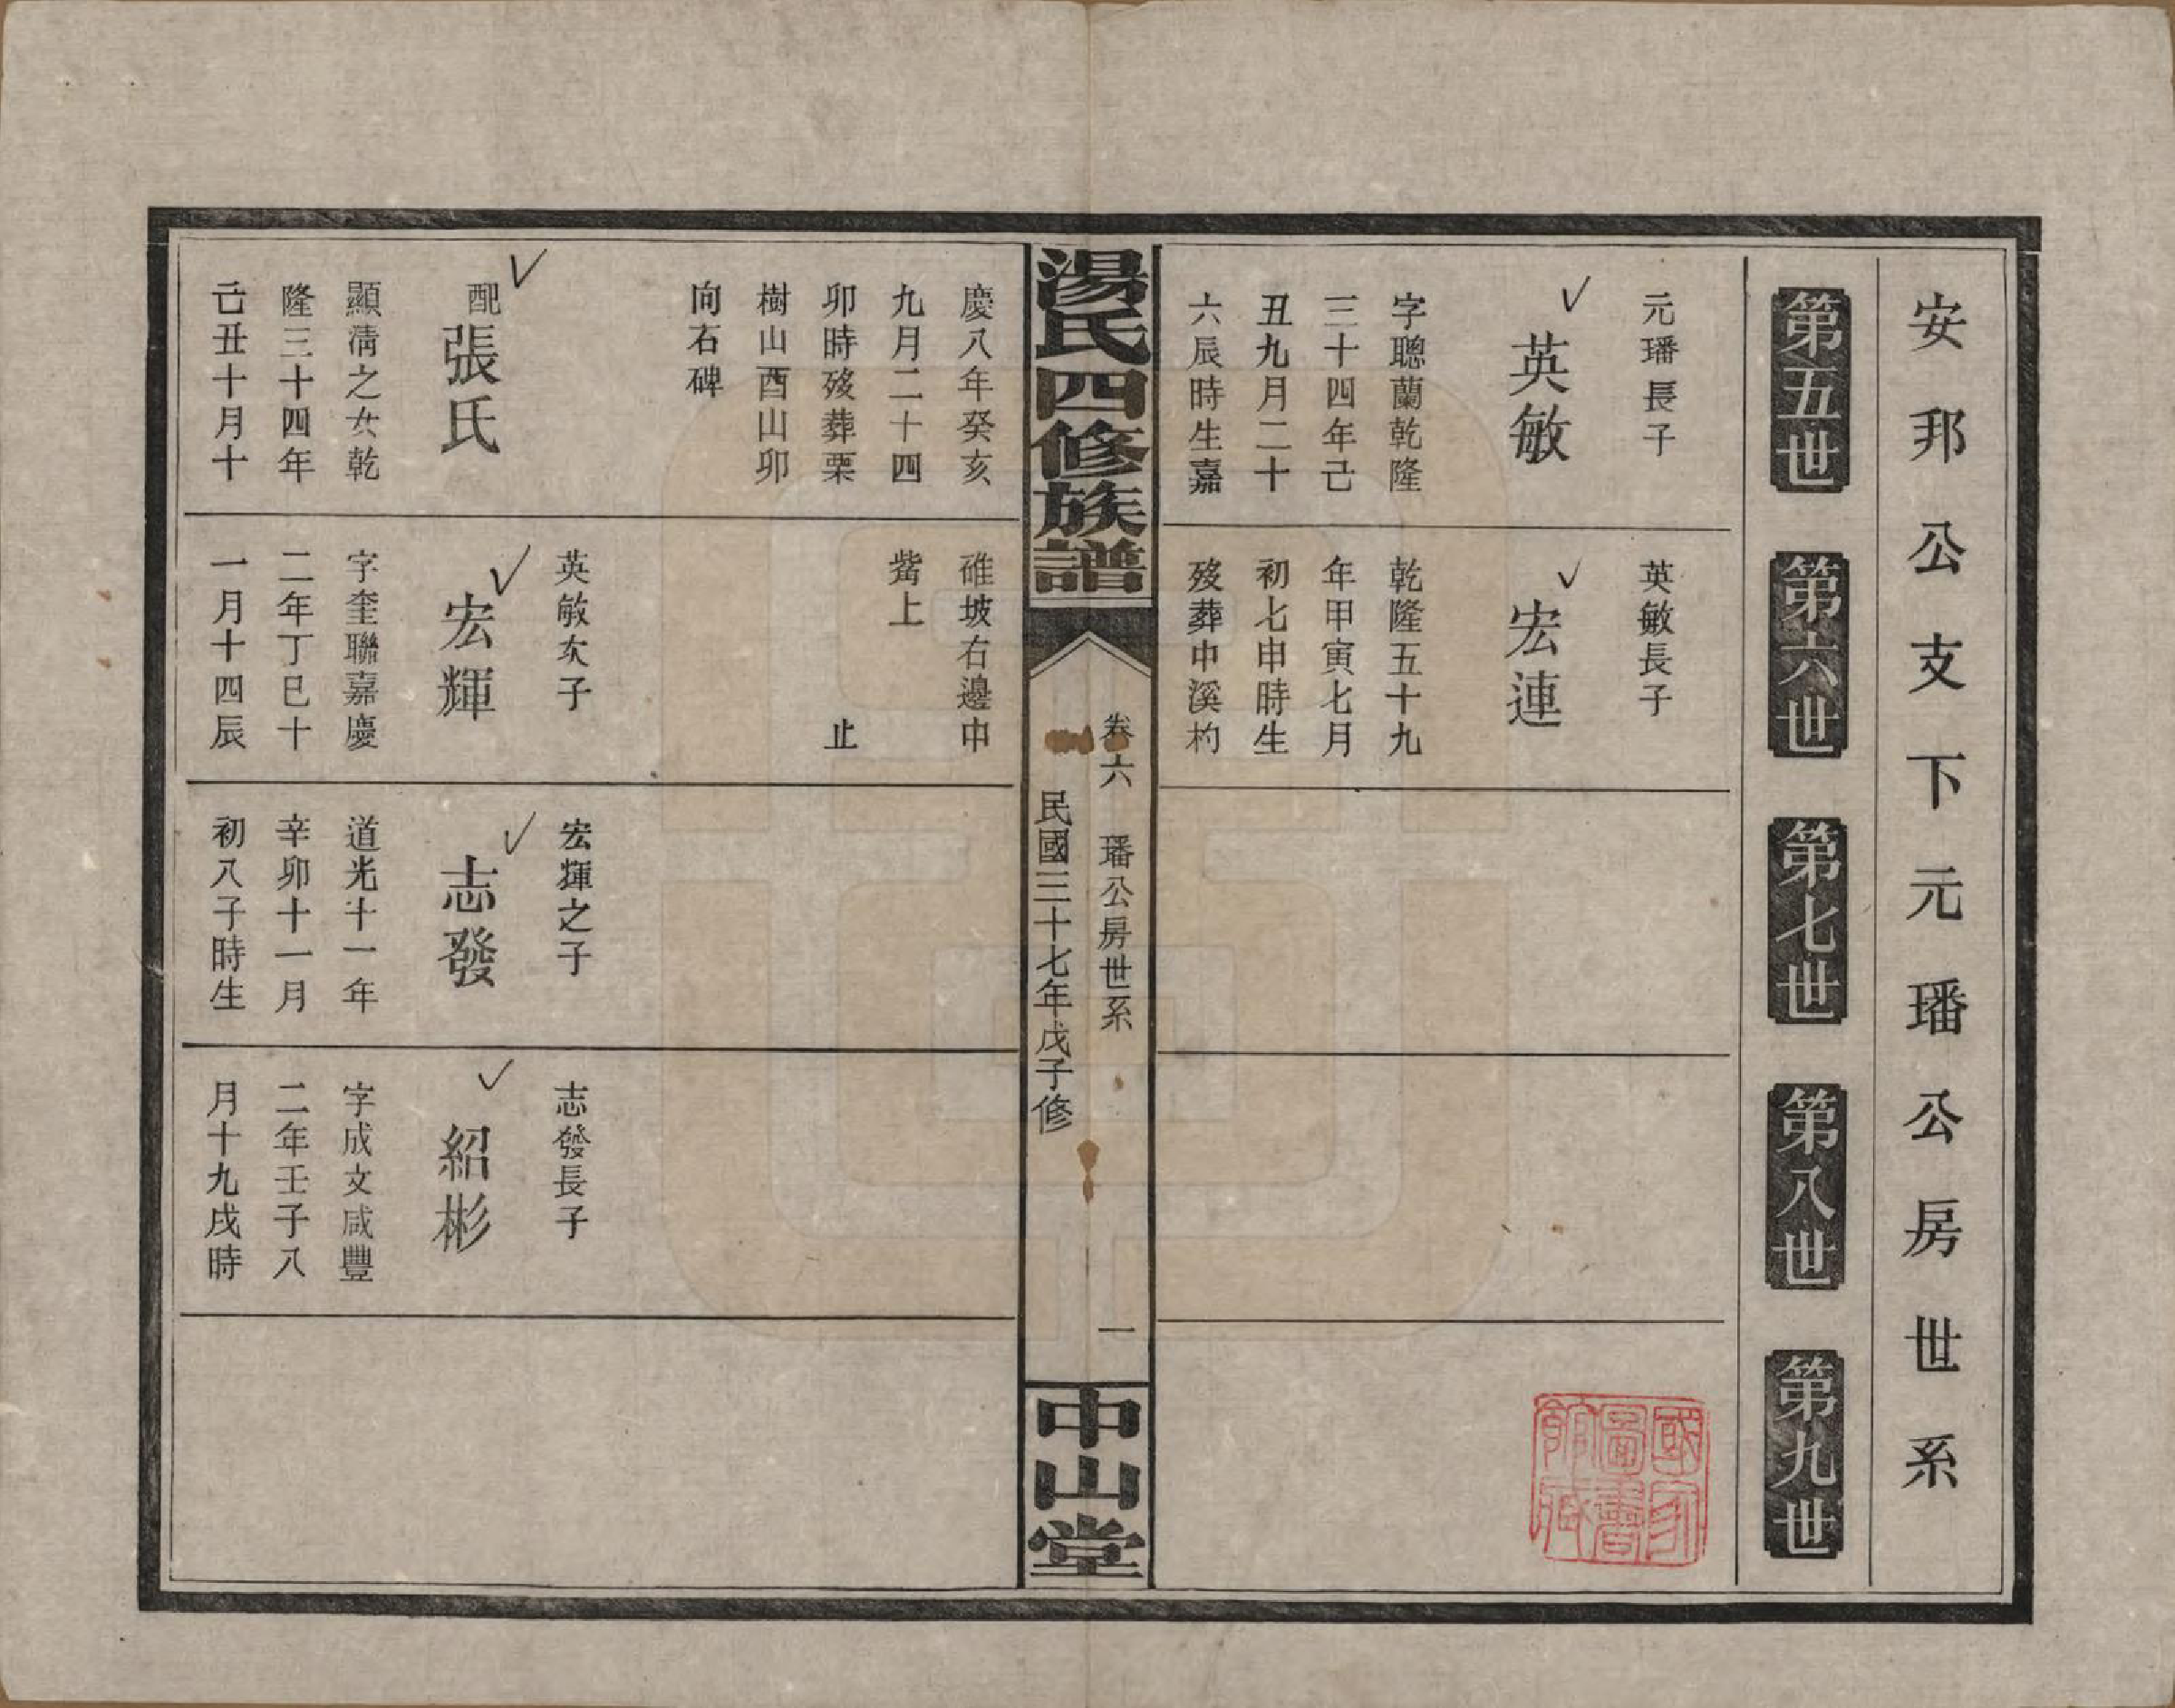 安邦公支下元璠公房世系
第五世
第六世
第七世
第八世
第九世
元璠長子
英敏
字聰蘭乾隆
三十四年己
丑九月二十
六辰時生嘉
英敏長子
宏連
乾隆五十九
年甲寅七月
初七申時生
歿葬中溪杓
國家圖書館藏
湯氏四修族譜
卷六 璠公房世系 一
民國三十七年戊子修
中山堂
慶八年癸亥
九月二十四
卯時歿葬栗
樹山酉山卯
向石碑
配張氏
顯清之女乾
隆三十四年
己丑十月十
碓坡右邊中
嘴上
止
英敏次子
宏輝
字奎聯嘉慶
二年丁巳十
一月十四辰
宏輝之子
志發
道光十一年
辛卯十一月
初八子時生
志發長子
紹彬
字成文咸豐
二年壬子八
月十九戌時